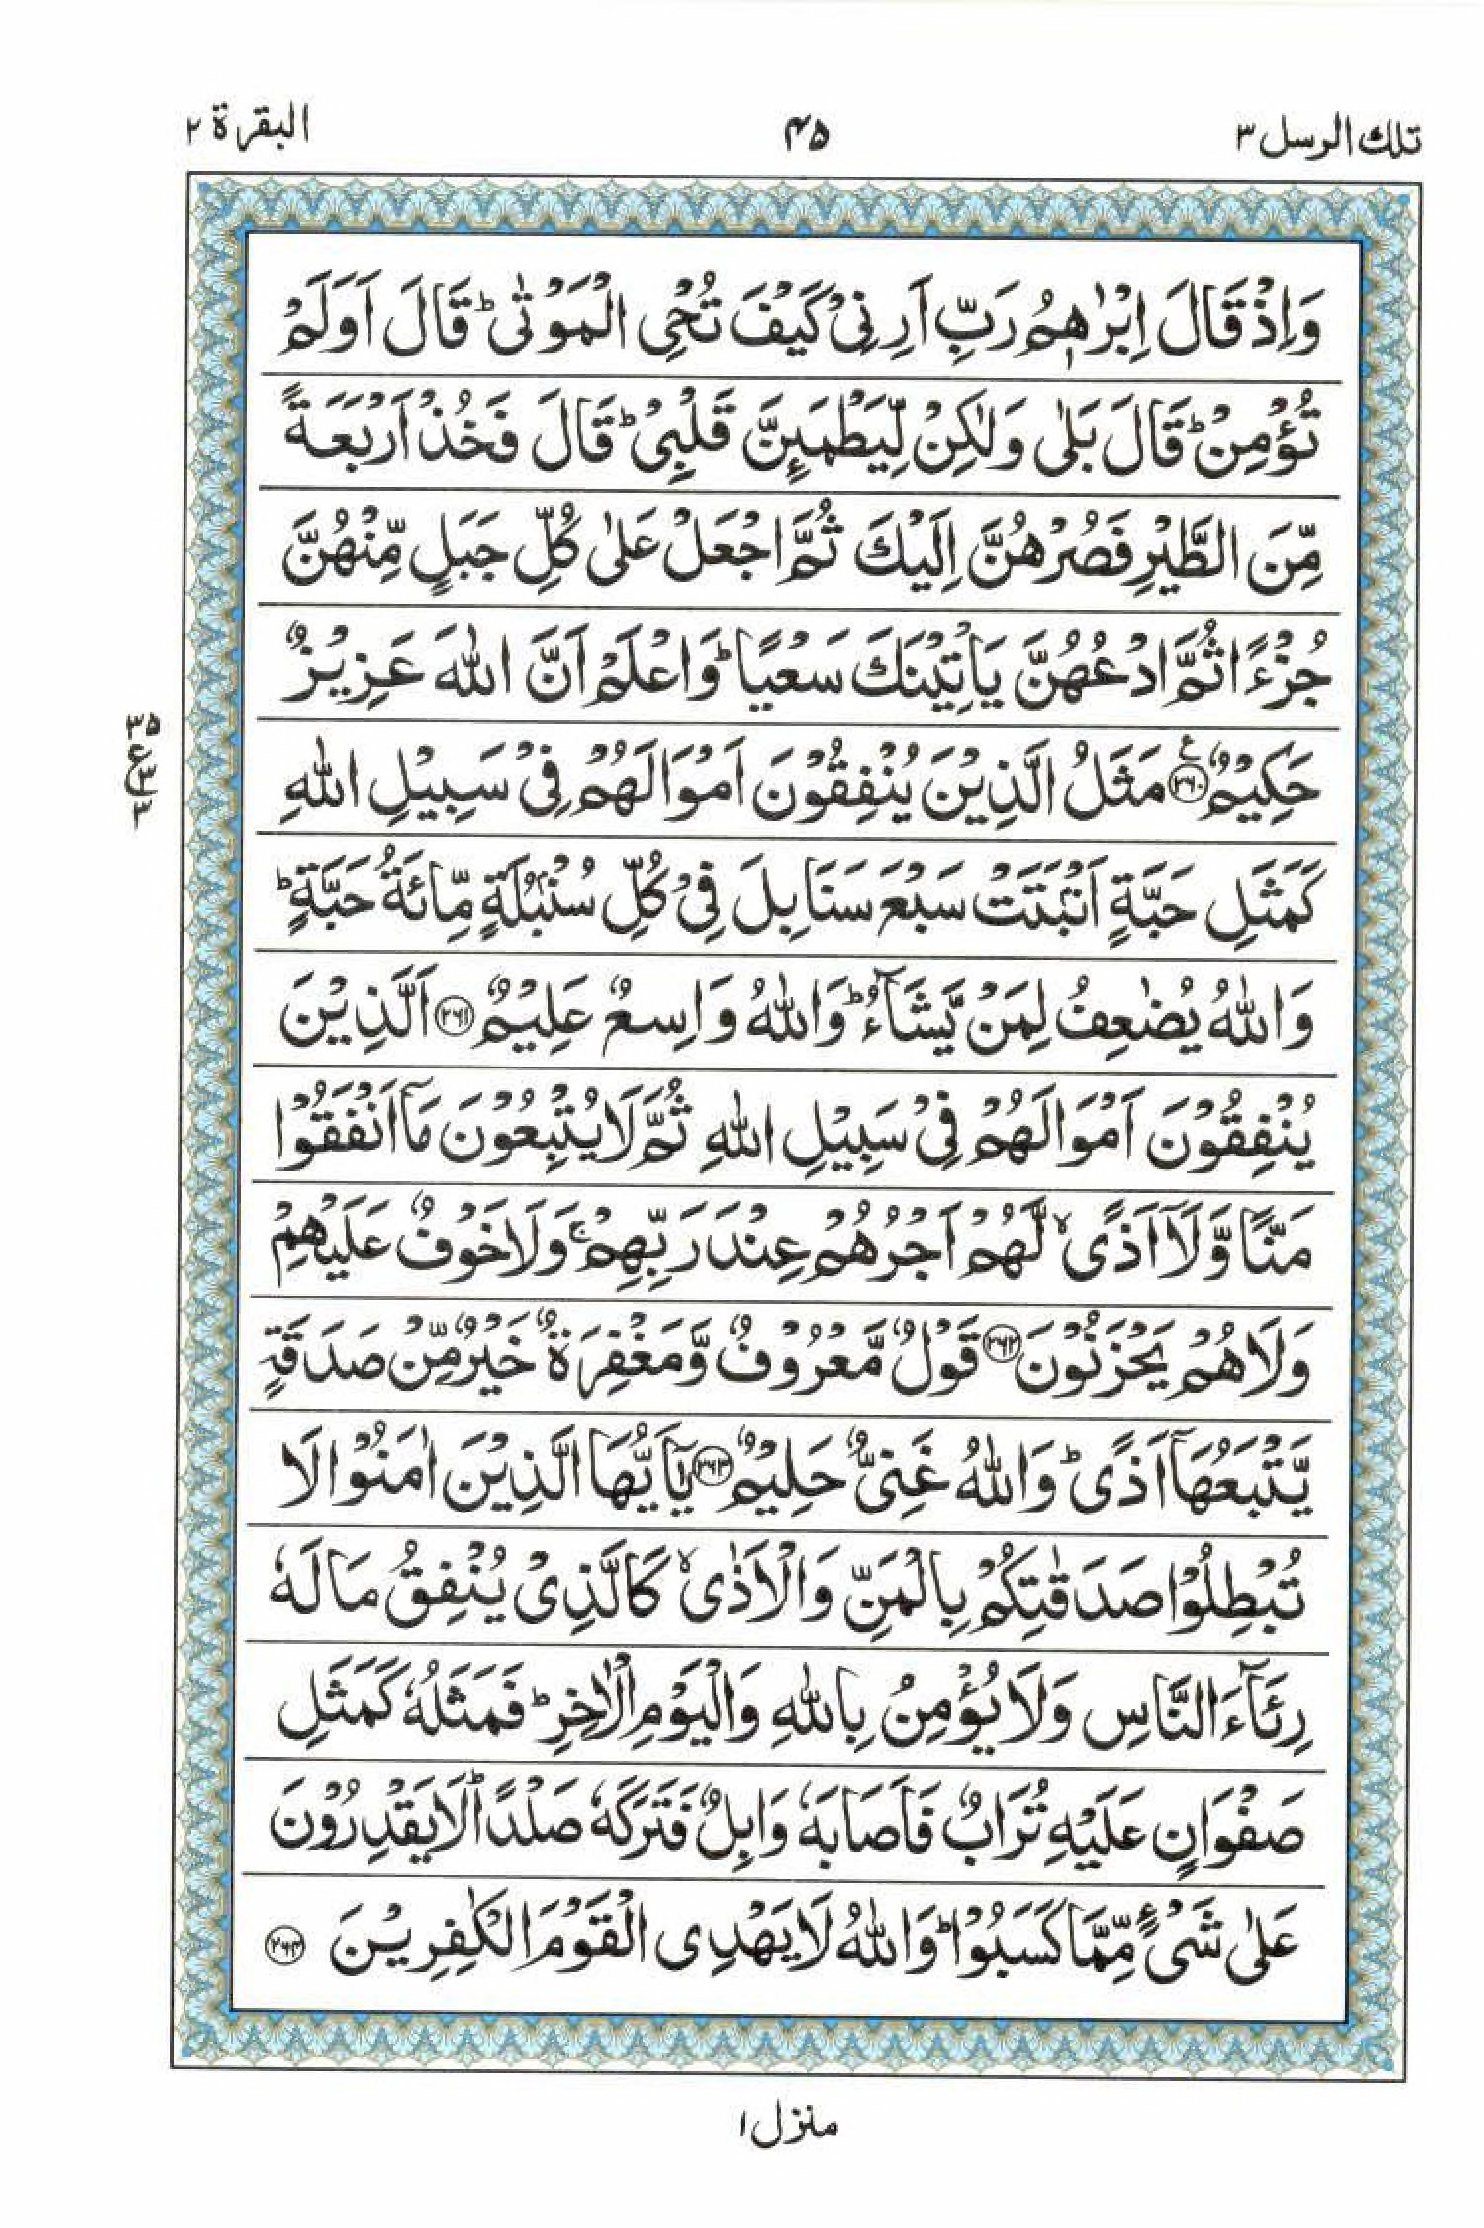 تلك الرسل ٣
۴۵
البقرة ٢
وَاِذْ قَالَ اِبْرٰهٖمُ رَبِّ اَرِنِيْ كَيْفَ تُحْيِ الْمَوْتٰى ؕ قَالَ اَوَلَمْ
تُؤْمِنْ ؕ قَالَ بَلٰى وَلٰكِنْ لِّيَطْمَىِٕنَّ قَلْبِيْ ؕ قَالَ فَخُذْ اَرْبَعَةً
مِّنَ الطَّيْرِ فَصُرْهُنَّ اِلَيْكَ ثُمَّ اجْعَلْ عَلٰى كُلِّ جَبَلٍ مِّنْهُنَّ
جُزْءًا ثُمَّ ادْعُهُنَّ يَاْتِيْنَكَ سَعْيًا ؕ وَاعْلَمْ اَنَّ اللّٰهَ عَزِيْزٌ
حَكِيْمٌ ۧ ﴿۲۶۰﴾ مَثَلُ الَّذِيْنَ يُنْفِقُوْنَ اَمْوَالَهُمْ فِيْ سَبِيْلِ اللّٰهِ
كَمَثَلِ حَبَّةٍ اَنْۢبَتَتْ سَبْعَ سَنَابِلَ فِيْ كُلِّ سُنْۢبُلَةٍ مِّائَةُ حَبَّةٍ ؕ
وَاللّٰهُ يُضٰعِفُ لِمَنْ يَّشَآءُ ؕ وَاللّٰهُ وَاسِعٌ عَلِيْمٌ ﴿۲۶۱﴾ اَلَّذِيْنَ
يُنْفِقُوْنَ اَمْوَالَهُمْ فِيْ سَبِيْلِ اللّٰهِ ثُمَّ لَا يُتْبِعُوْنَ مَآ اَنْفَقُوْا
مَنًّا وَّلَآ اَذًى ۙ لَّهُمْ اَجْرُهُمْ عِنْدَ رَبِّهِمْ ۚ وَلَا خَوْفٌ عَلَيْهِمْ
وَلَا هُمْ يَحْزَنُوْنَ ﴿۲۶۲﴾ قَوْلٌ مَّعْرُوْفٌ وَّمَغْفِرَةٌ خَيْرٌ مِّنْ صَدَقَةٍ
يَّتْبَعُهَآ اَذًى ؕ وَاللّٰهُ غَنِيٌّ حَلِيْمٌ ﴿۲۶۳﴾ يٰٓاَيُّهَا الَّذِيْنَ اٰمَنُوْا لَا
تُبْطِلُوْا صَدَقٰتِكُمْ بِالْمَنِّ وَالْاَذٰى ۙ كَالَّذِيْ يُنْفِقُ مَالَهٗ
رِئَآءَ النَّاسِ وَلَا يُؤْمِنُ بِاللّٰهِ وَالْيَوْمِ الْاٰخِرِ ؕ فَمَثَلُهٗ كَمَثَلِ
صَفْوَانٍ عَلَيْهِ تُرَابٌ فَاَصَابَهٗ وَابِلٌ فَتَرَكَهٗ صَلْدًا ؕ لَا يَقْدِرُوْنَ
عَلٰى شَيْءٍ مِّمَّا كَسَبُوْا ؕ وَاللّٰهُ لَا يَهْدِى الْقَوْمَ الْكٰفِرِيْنَ ﴿۲۶۴﴾
۳۵
ع
۳
۳
منزل ۱